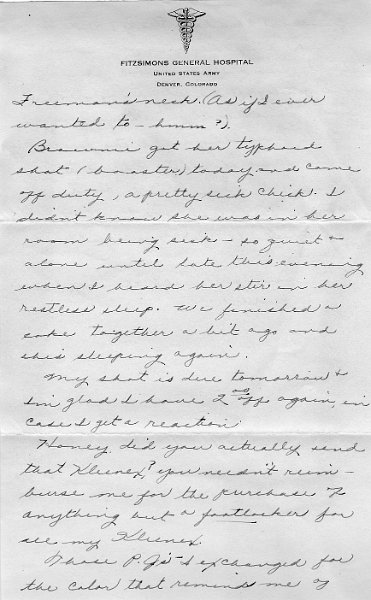 FITZSIMONS GENERAL HOSPITAL
UNITED STATES ARMY
DENVER, COLORADO
Freeman's neck. (As if I ever
wanted to - hmm?).
Brownie got her typhoid
shot (booster) today and came
off duty, a pretty sick chick. I
didn't know she was in her
room being sick - so quiet &
alone until late this evening
when I heard her stir in her
restless sleep. We finished a
coke together a bit ago and
she's sleeping again.
My shot is due tomorrow &
I'm glad I have 2 off again in
case I get a reaction.
Honey, did you actually send
that Kleenex? You needn't reim-
burse me for the purchase of
anything but a footlocker for
all my Kleenex.
Those P.J's I exchanged for
the color that reminds me of